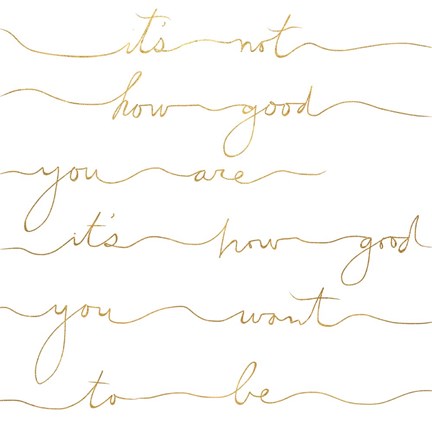 it's not
how good
you are
it's how good
you want
to be